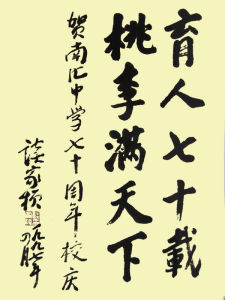 育人七十載
桃李满天下
贺南汇中学七十周年校庆
谈家桢
一九九七年